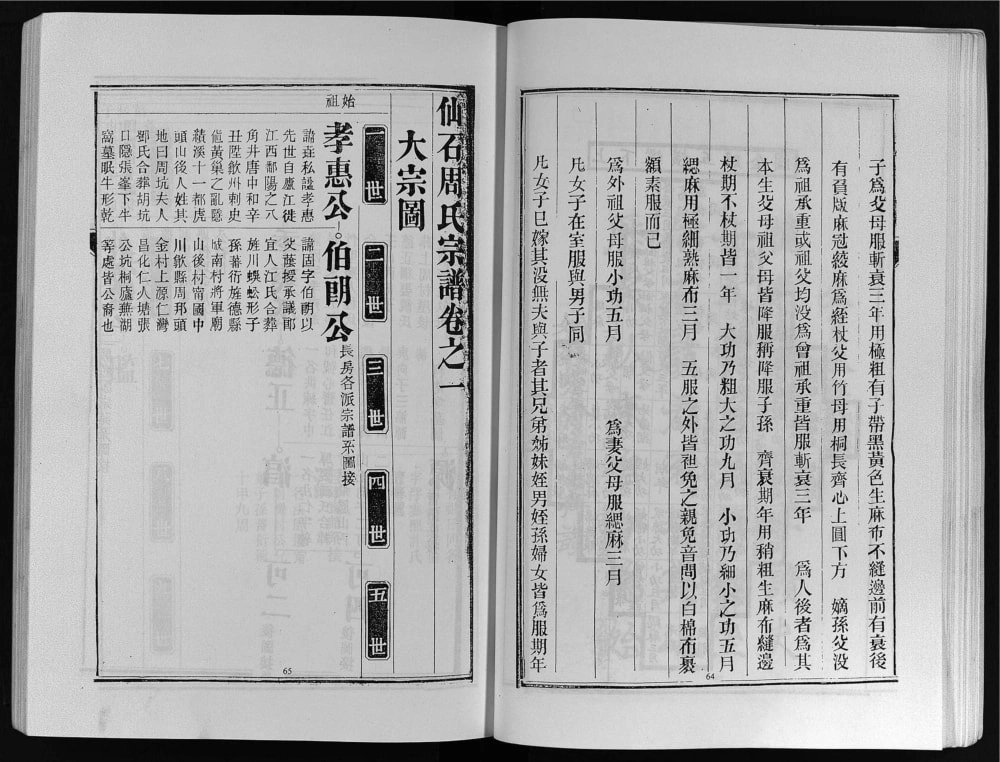 子爲父母服斬衰三年用極粗有子帶黑黃色生麻布不縫邊前有衰後
有負版麻冠綾麻爲絰杖父用竹母用桐長齊心上圓下方　嫡孫父没
爲祖承重或祖父均没爲曾祖承重皆服斬衰三年　爲人後者爲其
本生父母祖父母皆降服稱降服子孫　齊衰期年用稍粗生麻布縫邊
杖期不杖期皆一年　大功乃粗大之功九月　小功乃細小之功五月
緦麻用極細熟麻布三月　五服之外皆袒免之親免音問以白棉布裹
額素服而已
爲外祖父母服小功五月　爲妻父母服緦麻三月
凡女子在室服與男子同
凡女子已嫁其没無夫與子者其兄弟姊妹姪男姪孫婦女皆爲服期年
64
仙石周氏宗譜卷之一
大宗圖
一世　二世　三世　四世　五世
始祖
孝惠公　伯朗公　長房各派宗譜系圖接
諱垚私諡孝惠
先世自廬江徙
江西鄱陽之八
角井唐中和辛
丑陞歙州刺史
値黃巢之亂隱
績溪十一都虎
頭山後人姓其
地曰周坑夫人
鄧氏合葬胡坑
口隱張峯下牛
窩墓眠牛形乾
諱固字伯朗以
父蔭授承議郎
宜人江氏合葬
旌川蜈蚣形子
孫蕃衍旌德縣
城南村將軍廟
山後村甯國中
川歙縣周邦頭
金村上源仁灣
昌化仁人塘張
公坑桐廬蕪湖
等處皆公裔也
65